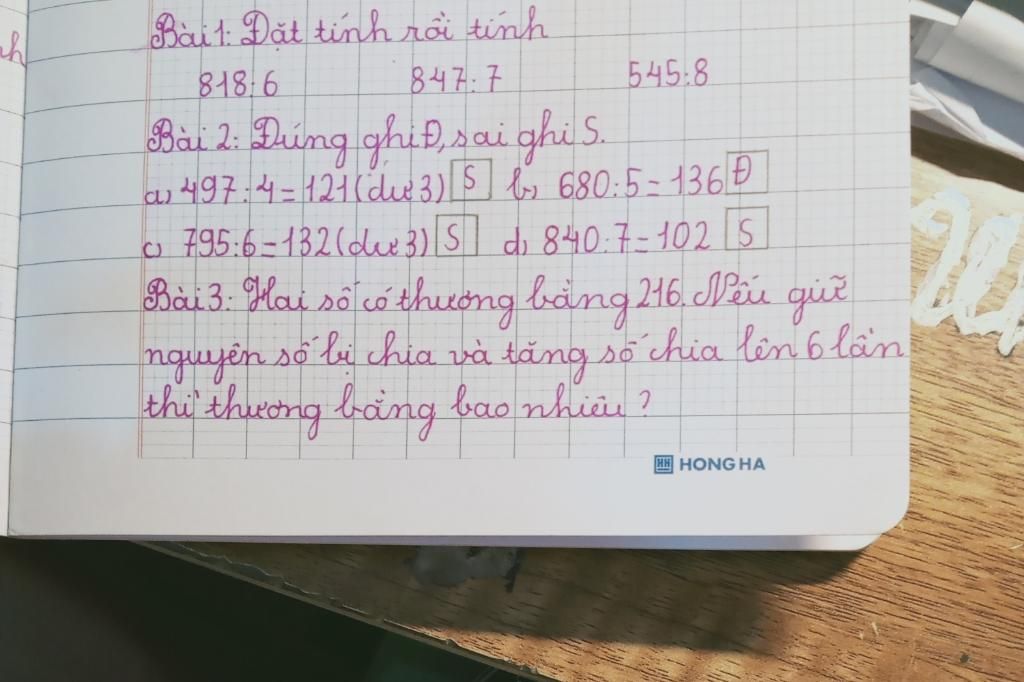 Bài 1: Đặt tính rồi tính
818:6 847:7 545:8
Bài 2: Đúng ghi Đ, sai ghi S.
a, 497:4=121(dư 3) S b, 680:5=136 Đ
c, 795:6=132(dư 3) S d, 840:7=102 S
Bài 3: Hai số có thương bằng 216. Nếu giữ
nguyên số bị chia và tăng số chia lên 6 lần
thì thương bằng bao nhiêu?
HH HONG HA